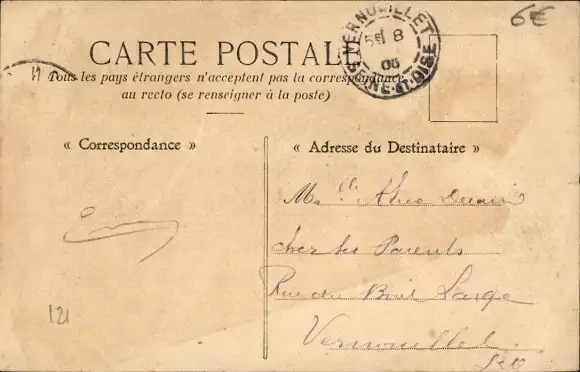 6€
VERNOUILLET
5E 8
06
SEINE-ET-OISE
CARTE POSTALE
Tous les pays étrangers n'acceptent pas la correspondance
au recto (se renseigner à la poste)
« Correspondance »
« Adresse du Destinataire »
Melle
chez ses Parents
Rue du Bout Large
Vernouillet
S&O
121